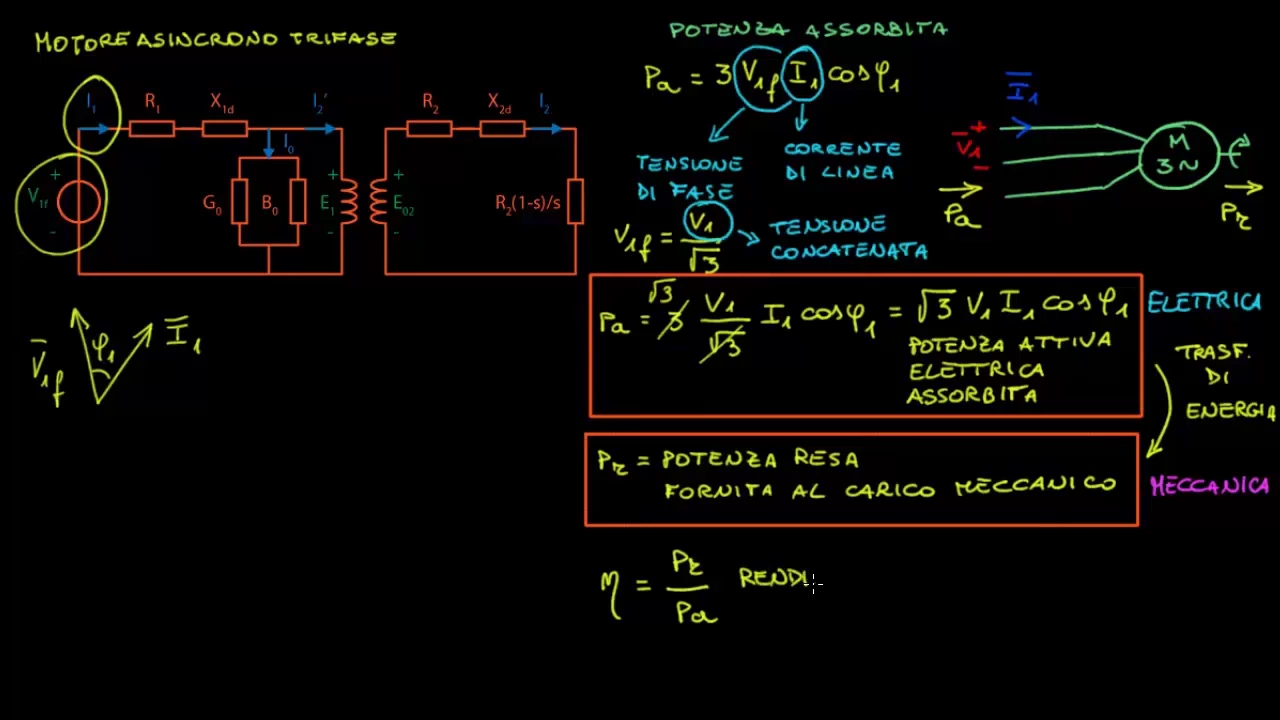 MOTORE ASINCRONO TRIFASE
I₁ R₁ X₁d I₂' R₂ X₂d I₂
I₀
+ V₁f -
G₀ B₀ + E₁ - + E₀₂ - R₂(1-s)/s
V̄₁f φ₁ Ī₁
POTENZA ASSORBITA
Pa = 3 V₁f I₁ cosφ₁
TENSIONE
DI FASE
CORRENTE
DI LINEA
V₁f = V₁/√3
TENSIONE
CONCATENATA
Ī₁
+ V̄₁ -
M
3~
Pa
Pr
Pa = √3 3 V₁/√3 I₁ cosφ₁ = √3 V₁ I₁ cosφ₁
POTENZA ATTIVA
ELETTRICA
ASSORBITA
ELETTRICA
TRASF.
DI
ENERGIA
Pr = POTENZA RESA
FORNITA AL CARICO MECCANICO
MECCANICA
η = Pr/Pa RENDI